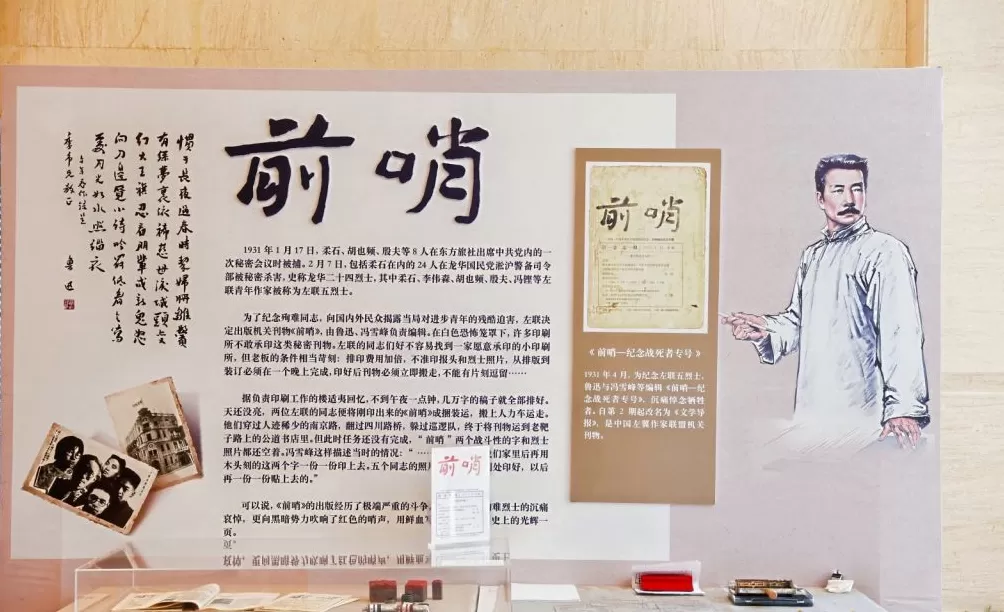 慣于長夜過春時挈婦將雛鬢
有絲夢裏依稀慈母淚城頭變
幻大王旗忍看朋輩成新鬼怒
向刀邊覓小詩吟罷低眉無寫
處月光如水照緇衣
季市兄教正
魯迅
前哨
1931 年 1 月 17 日，柔石、胡也频、殷夫等 8 人在东方旅社出席中共党内的一
次秘密会议时被捕。2 月 7 日，包括柔石在内的 24 人在龙华国民党淞沪警备司令
部被秘密杀害，史称龙华二十四烈士，其中柔石、李伟森、胡也频、殷夫、冯铿等左
联青年作家被称为左联五烈士。
为了纪念殉难同志，向国内外民众揭露当局对进步青年的残酷迫害，左联决
定出版机关刊物《前哨》，由鲁迅、冯雪峰负责编辑。在白色恐怖笼罩下，许多印刷
所不敢承印这类秘密刊物。左联的同志们好不容易找到一家愿意承印的小印刷
所，但老板的条件相当苛刻：排印费用加倍，不准印报头和烈士照片，从排版到
装订必须在一个晚上完成，印好后刊物必须立即搬走，不能有片刻逗留……
据负责印刷工作的楼适夷回忆，不到午夜一点钟，几万字的稿子就全部排好。
天还没亮，两位左联的同志便将刚印出来的《前哨》成捆装运，搬上人力车运走。
他们穿过人迹稀少的南京路，翻过四川路桥，躲过巡逻队，终于将刊物运到老靶
子路上的公道书店里。但此时任务还没有完成，“前哨”两个战斗性的字和烈士
照片都还空着。冯雪峰这样描述当时的情况：“……们家里后再用
木头刻的这两个字一份一份印上去。五个同志的照处印好，以后
再一份一份贴上去的。”
可以说，《前哨》的出版经历了极端严重的斗争，难烈士的沉痛
哀悼，更向黑暗势力吹响了红色的哨声，用鲜血史上的光辉一
页。
前哨
前哨
《前哨—纪念战死者专号》
1931 年 4 月，为纪念左联五烈士，
鲁迅与冯雪峰等编辑《前哨—纪
念战死者专号》，沉痛悼念牺牲
者。自第 2 期起改名为《文学导
报》，是中国左翼作家联盟机关
刊物。